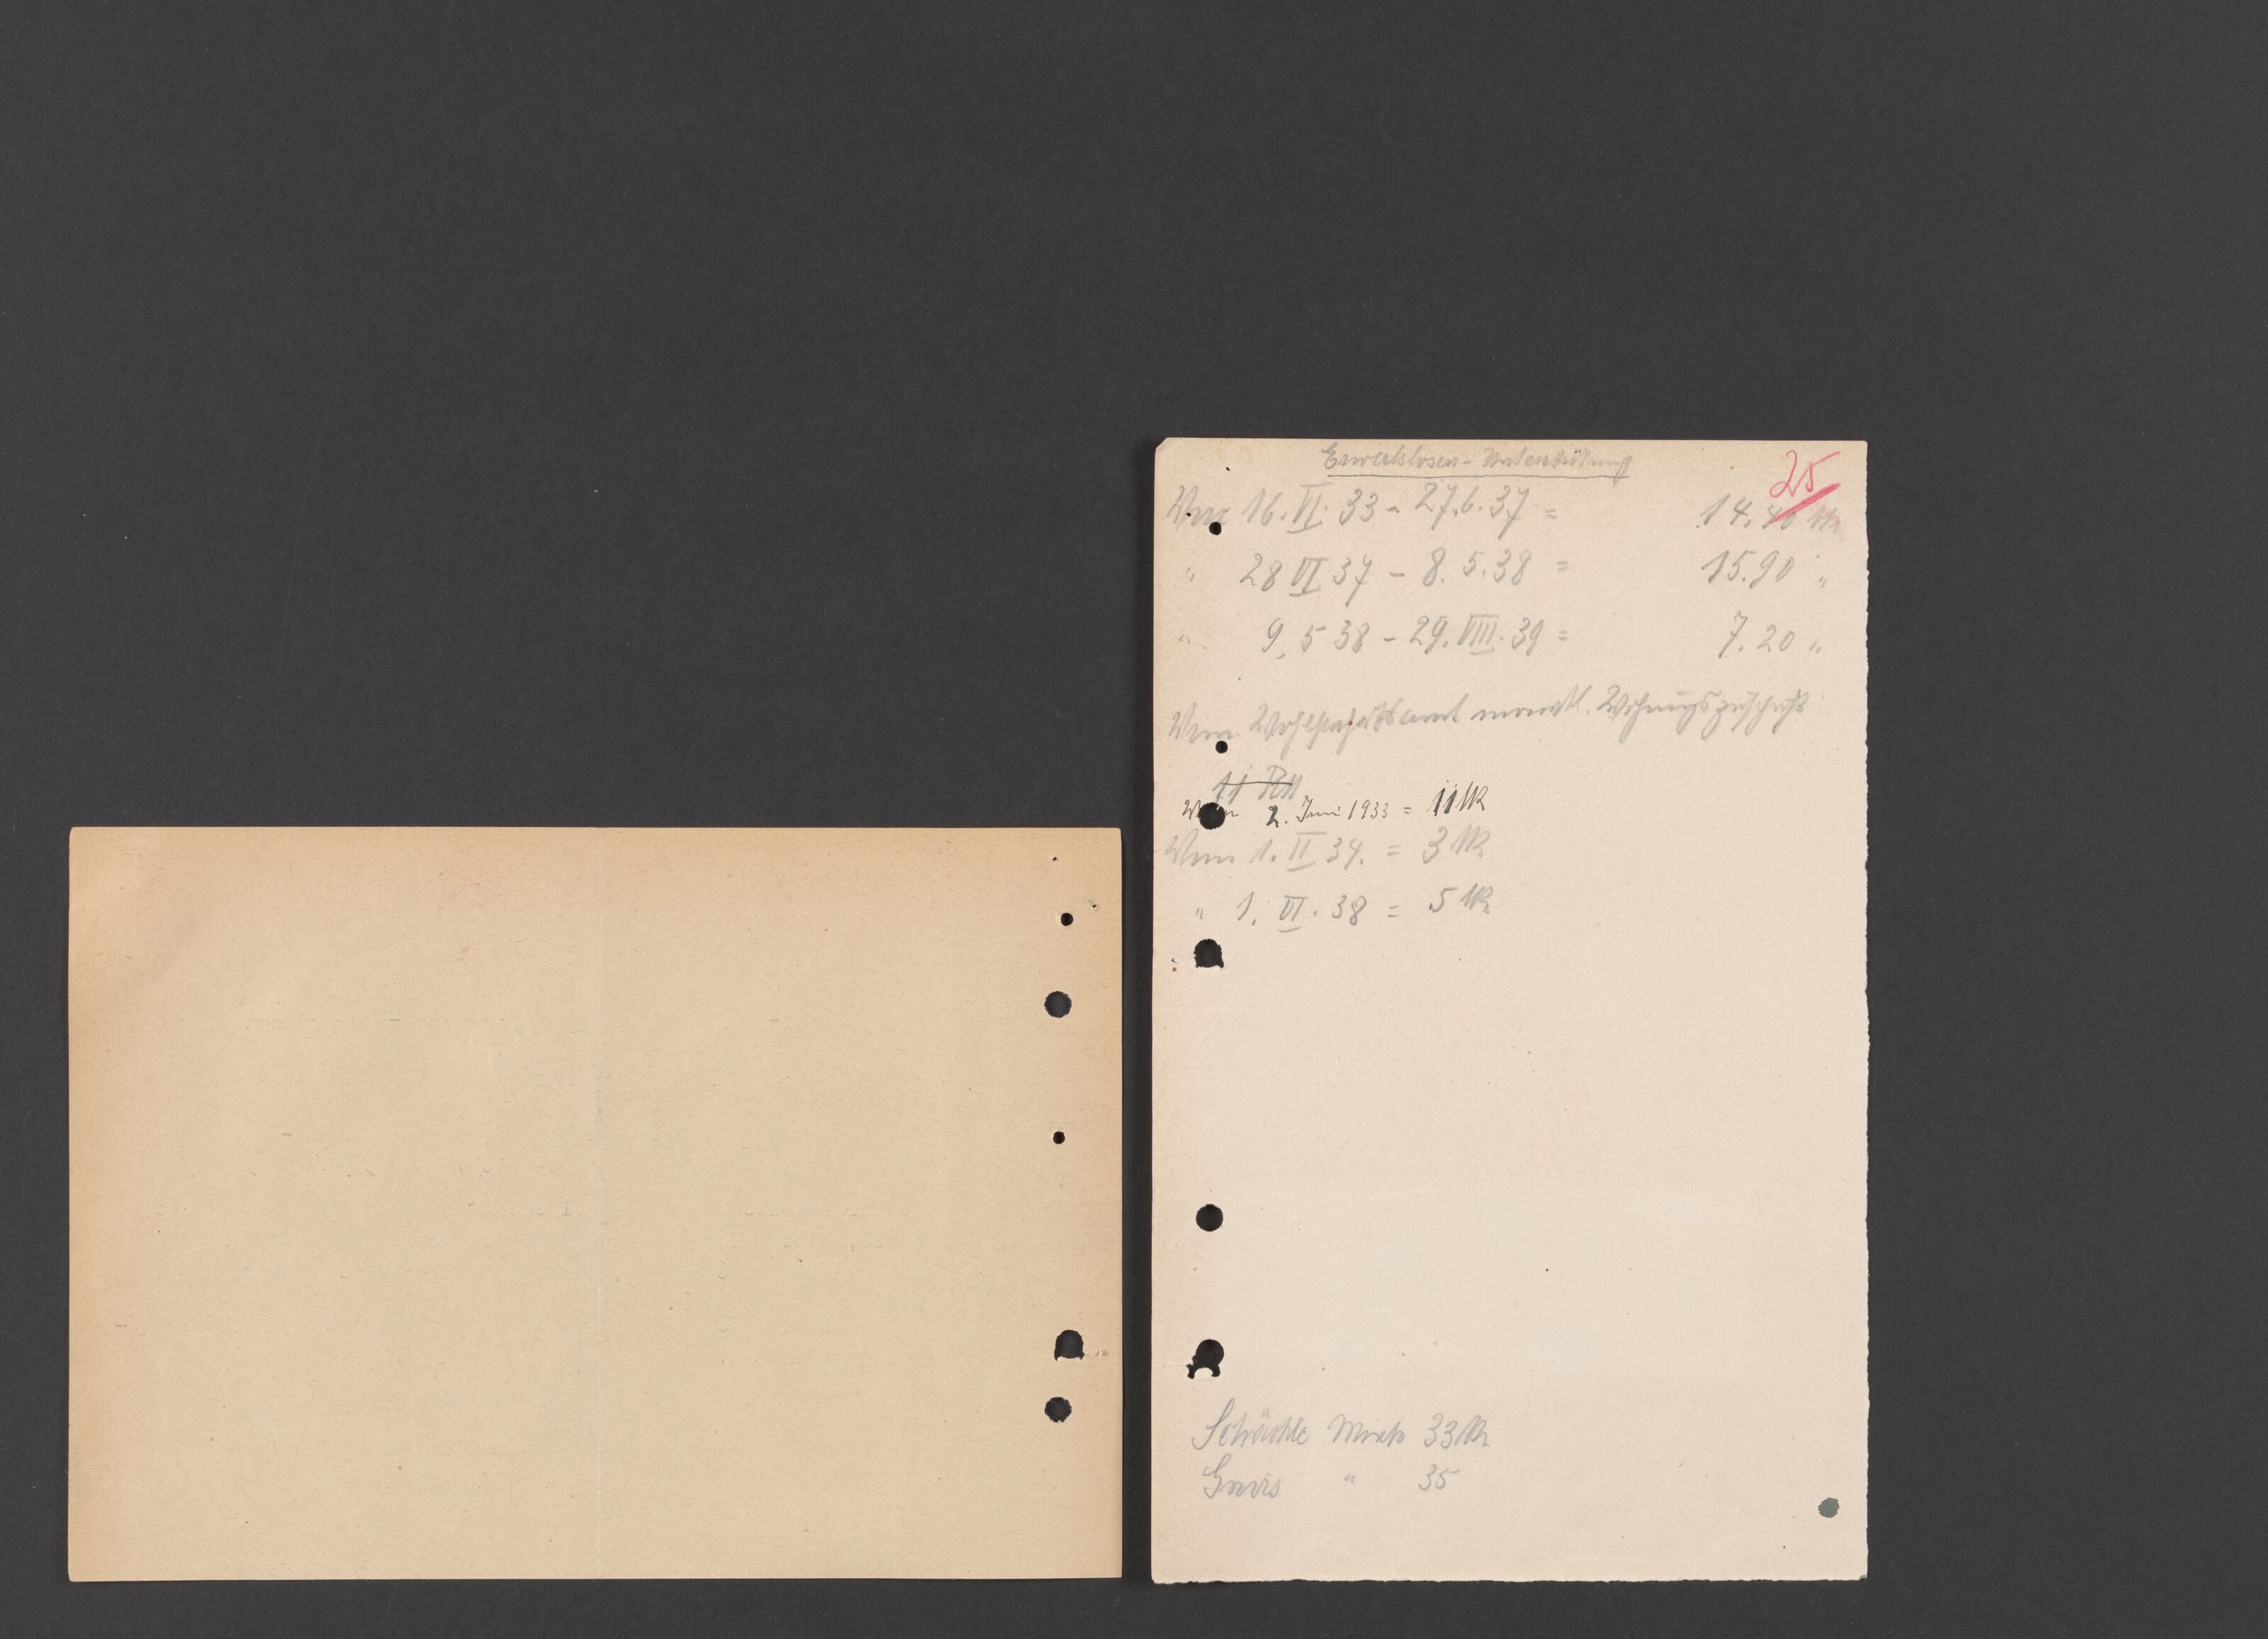 Erwerbslosen-Unterstützung
25
Vom 16. VI. 33 - 27.6.37 = 14.40 M
" 28 VI 37 - 8.5.38 = 15.90 "
" 9.5 38 - 29. VIII. 39 = 7.20 "
Vom Wohlfahrtsamt monatl. Wohnungszuschuß
11 RM
Vom 2. Juni 1933 = 11 M
Vom 1. II 34. = 3 M
" 1. VI. 38 = 5 M
Miete 33 M
" 35